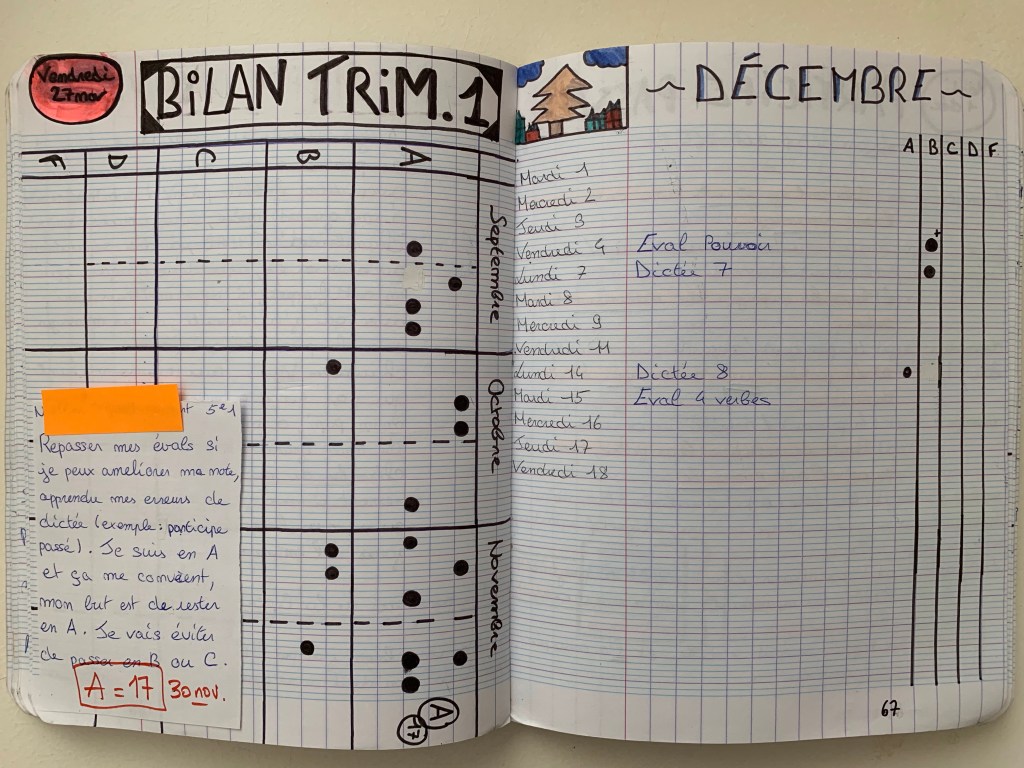 Vendredi
27 nov
BiLAN TRiM. 1
F D C B A
Septembre
Octobre
Novembre
nt 5e1
Repasser mes évals si
je peux améliorer ma note,
apprendre mes erreurs de
dictée (exemple : participe
passé). Je suis en A
et ça me convient,
mon but est de rester
en A. Je vais éviter
de passer en B ou C.
A = 17 30 nov.
A
17
~ DÉCEMBRE ~
A B C D F
Mardi 1
Mercredi 2
Jeudi 3
Vendredi 4 Eval Pouvoir +
Lundi 7 Dictée 7
Mardi 8
Mercredi 9
Vendredi 11
Lundi 14 Dictée 8
Mardi 15 Eval 4 verbes
Mercredi 16
Jeudi 17
Vendredi 18
67